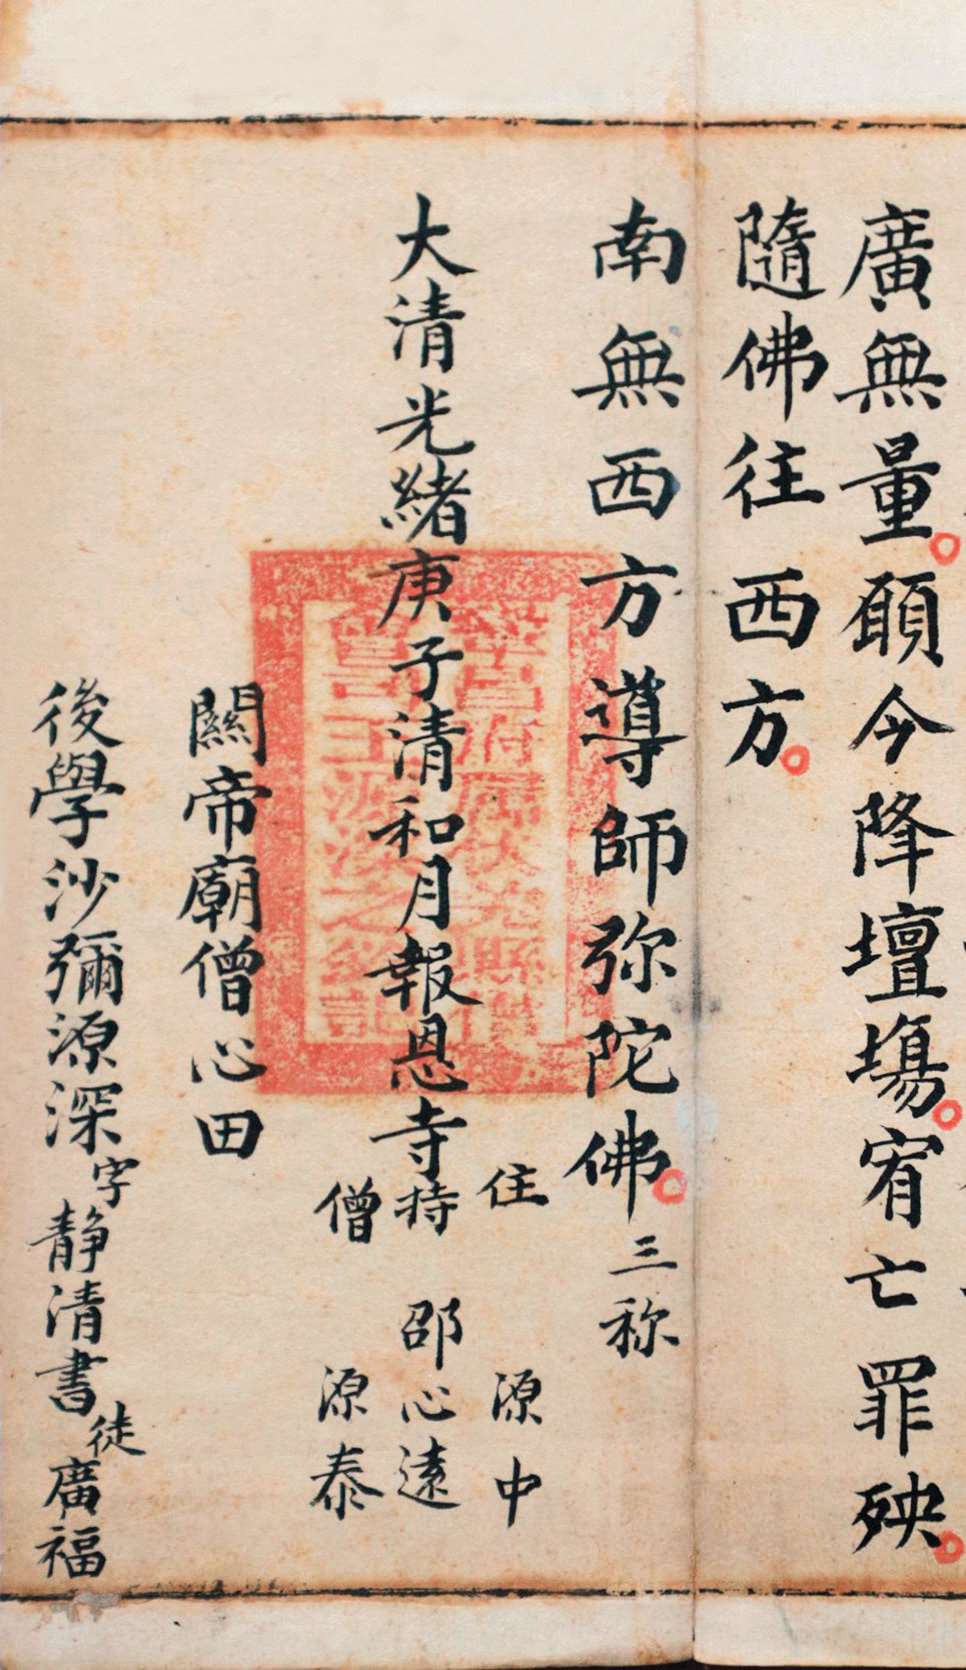 廣無量。願今降壇塲。宥亡罪殃。
隨佛往西方。
南無西方導師弥陀佛。三称
大清光緒庚子清和月報恩寺住持僧 源中 邵心遠 源泰
關帝廟僧心田
後學沙彌源深字静清書徒廣福